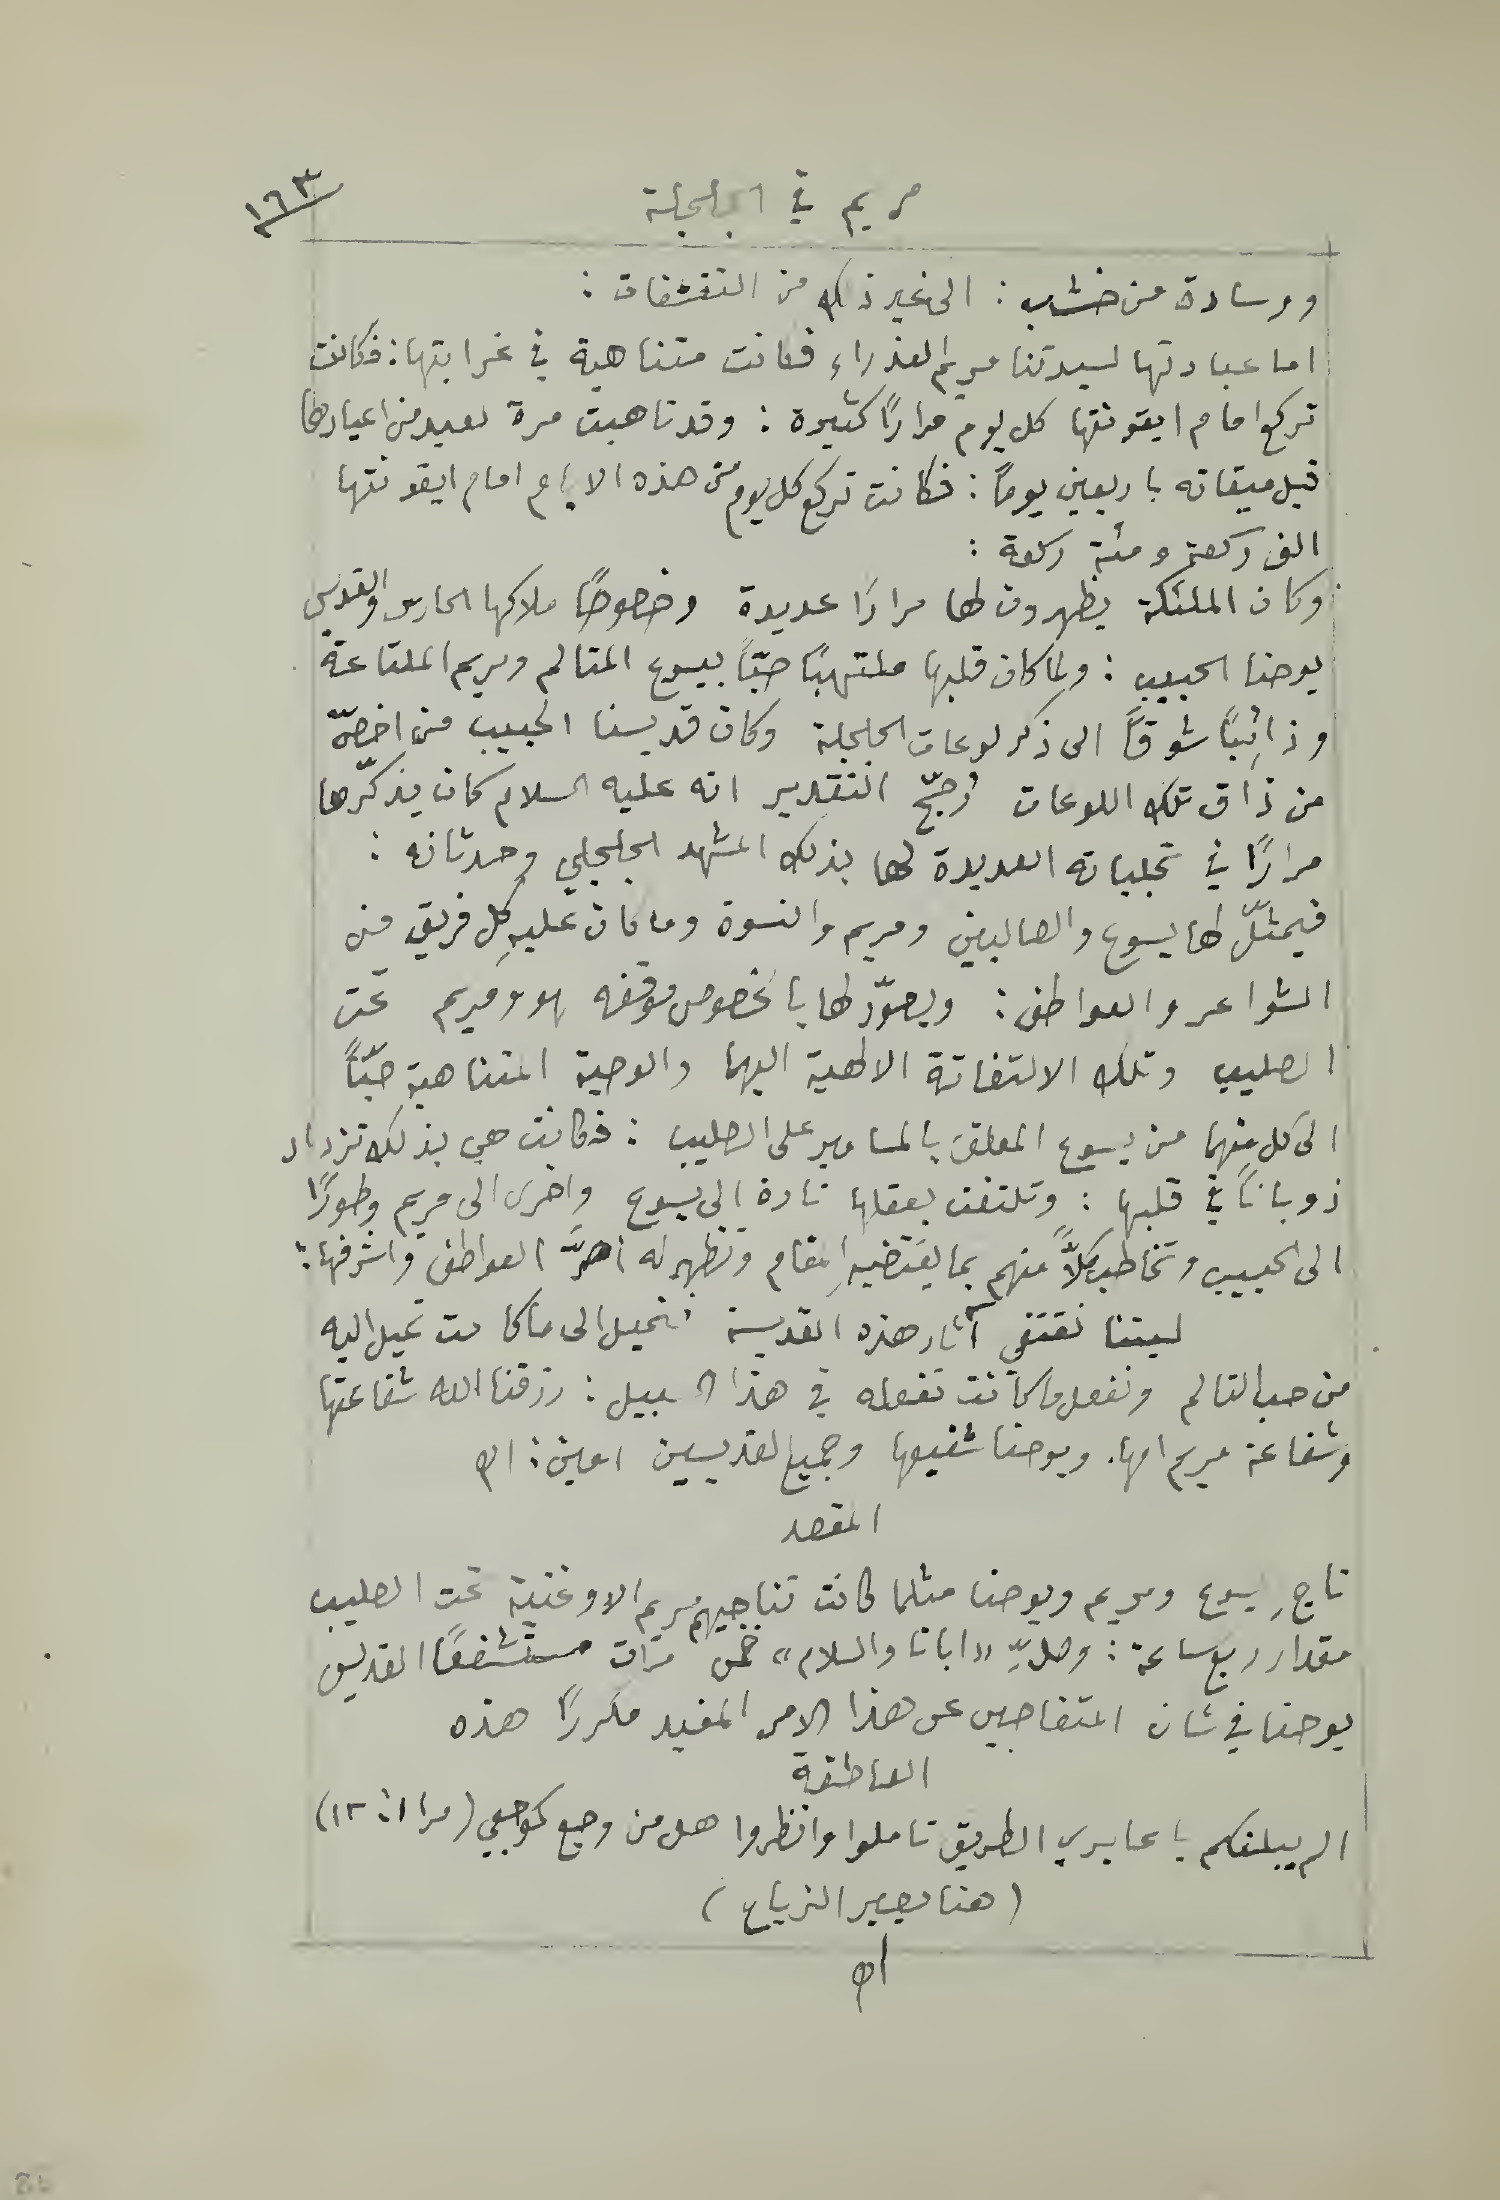 ١٦٣
مريم في الجلجلة
ووسادة من خشب : الى غير ذلك من التقشفات :
اما عبادتها لسيدتنا مريم العذراء فكانت متناهية في غرابتها : فكانت
تركع امام ايقونتها كل يوم مرارًا كثيرة : وقد تاهبت مرة لعيد من اعيادها
قبل ميقاته باربعين يوماً : فكانت تركع كل يوم من هذه الايام امام ايقونتها
الف ركعة ومئة ركعة :
وكان الملئكة يظهرون لها مرارًا عديدة وخصوصًا ملاكها الحارس والقديس
يوحنا الحبيب : ولما كان قلبها ملتهبًا حبًّا بيسوع المتالم ومريم الملتاعة
وذائبًا شوقاً الى ذكر لوعات الجلجلة وكان قديسنا الحبيب من اخصّ
من ذاق تلك اللوعات رُجّح التقدير انه عليه السلام كان يذكّرها
مرارًا في تجلياته العديدة لها بذلك المشهد الجلجلي وحدثانه :
فيمثّل لها يسوع والصالبين ومريم والنسوة وما كان عليهِ كل فريق من
الشواعر والعواطف : ويصوّر لها بالخصوص موقفه هو ومريم تحت
الصليب وتلك الالتفاتة الالهية اليهما والوصية المتناهية حبًّا
الى كل منهما من يسوع المعلق بالمسامير على الصليب : فكانت هي بذلك تزداد
ذوباناً في قلبها : وتلتفت بعقلها تارة الى يسوع واخرى الى مريم وطورًا
الى الحبيب وتخاطب كلاًّ منهم بما يقتضيهِ المقام وتظهر له احرَّ العواطف واشرفها :
ليتنا نقتفي آثار هذه القديسة فنميل الى ما كانت تميل اليه
من حب التالم ونفعل ما كانت تفعله في هذا السبيل : رزقنا الله شفاعتها
وشفاعة مريم امها. ويوحنا شفيعها وجميع القديسين امين : اھ
المقصد
ناجِ يسوع ومريم ويوحنا مثلما كانت تناجيهم مريم الاوغنية تحت الصليب
مقدار ربع ساعة : وصلِّ «ابانا والسلام» خمس مرات مستشفعًا القديس
يوحنا في شان المتغاضين عن هذا الامر المفيد مكررًا هذه
العاطفة
الم يبلغكم يا عابري الطريق تاملوا وانظروا هل من وجع كوجعي (مرا ١ : ١٢)
(هنا يصير الزياح)
اھ